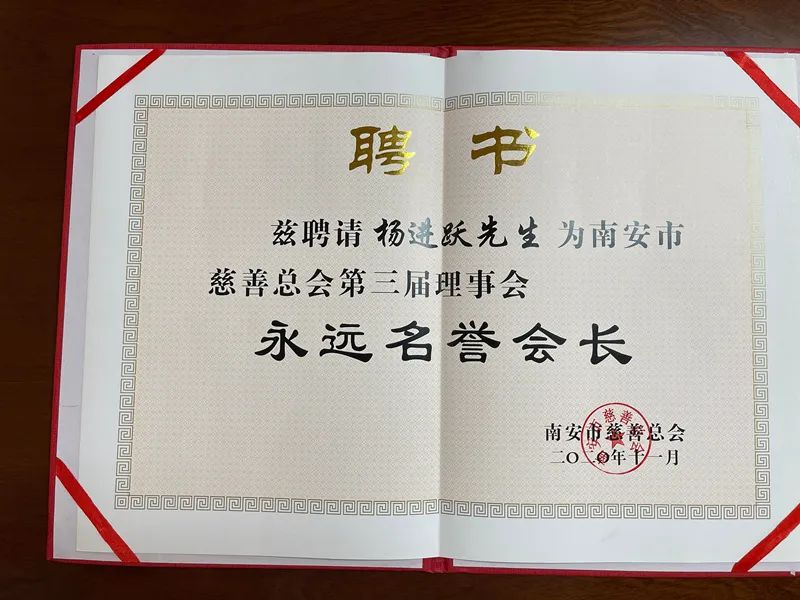 聘 书
兹聘请 杨进跃先生 为南安市
慈善总会第三届理事会
永远名誉会长
南安市慈善总会
二〇二〇年十一月
南安市慈善总会